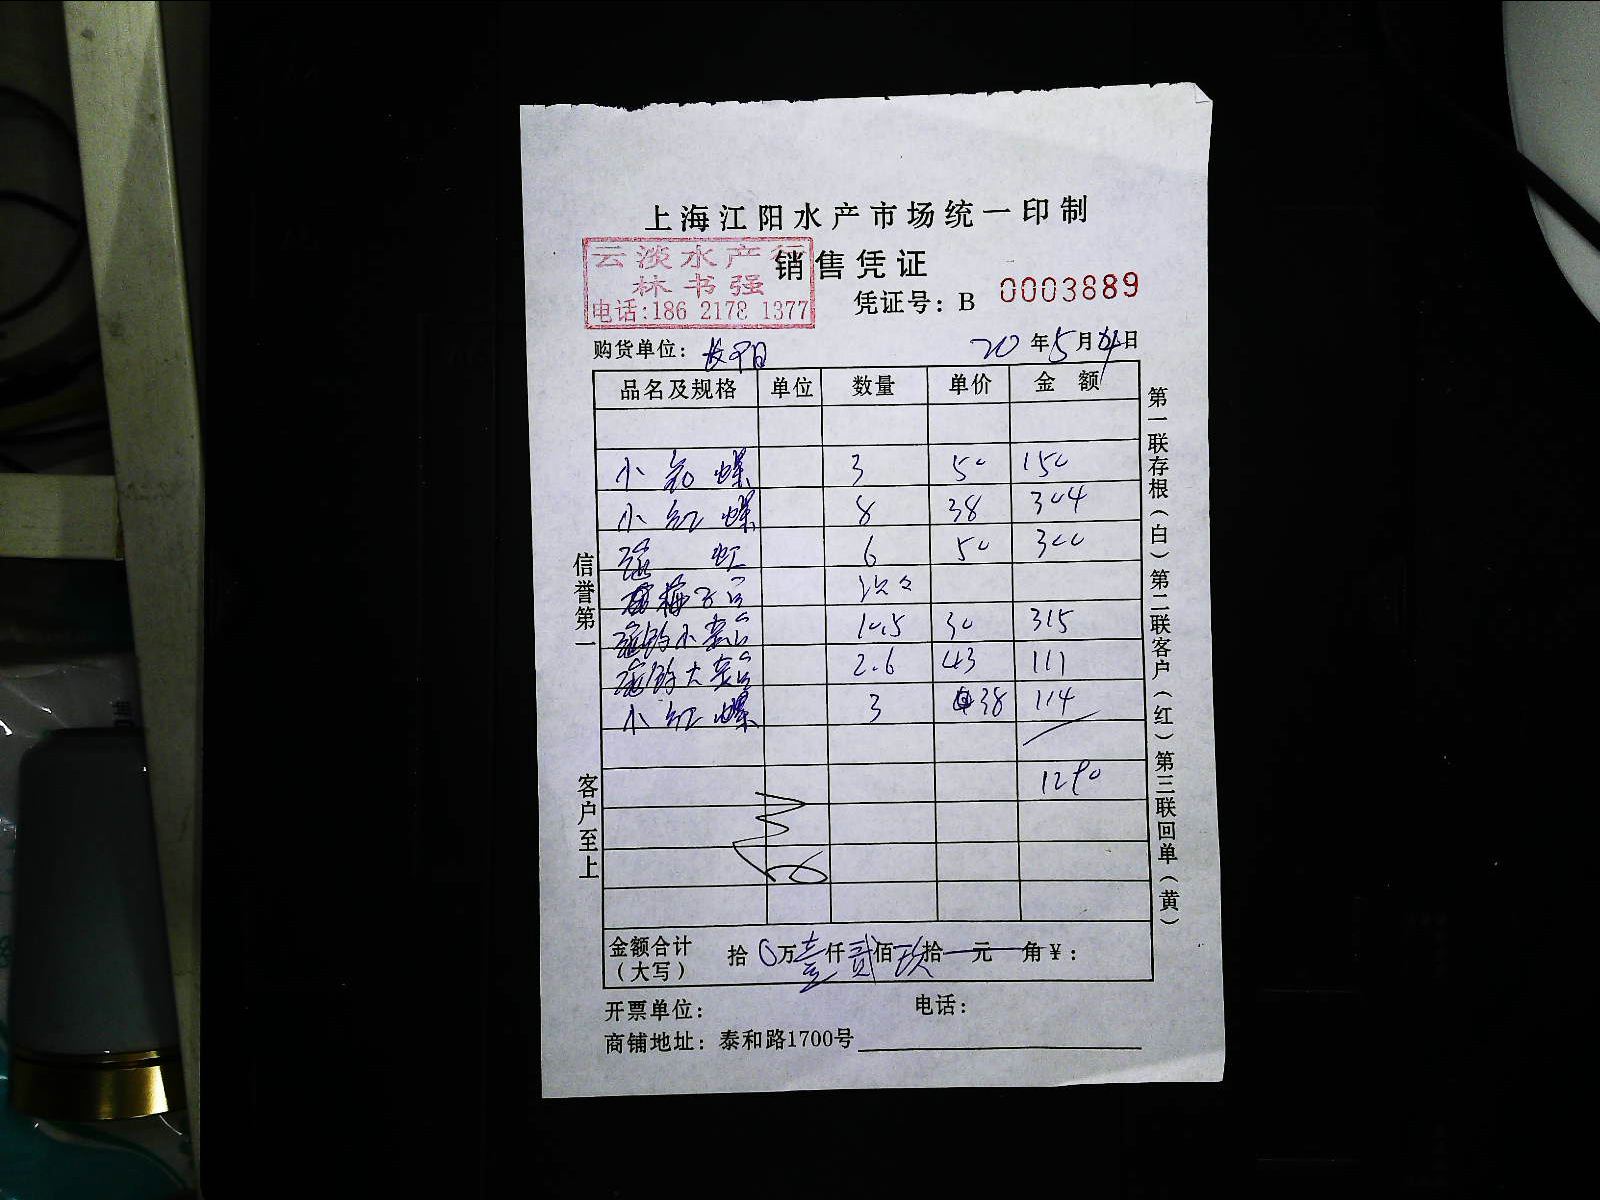 上海江阳水产市场统一印制
云淡水产行
销售凭证
林书强
电话:186 2178 1377
凭证号：B 0003889
购货单位：长阳 20年5月4日
品名及规格 单位 数量 单价 金额
小 螺 3 50 150
小红螺 8 38 304
虹 6 50 300
10.5 30 315
2.6 43 111
小红螺 3 38 114
1290
金额合计（大写） 拾0万壹仟贰佰玖拾 元 角￥：
开票单位： 电话：
商铺地址：泰和路1700号
信誉第一
客户至上
第一联存根（白）第二联客户（红）第三联回单（黄）